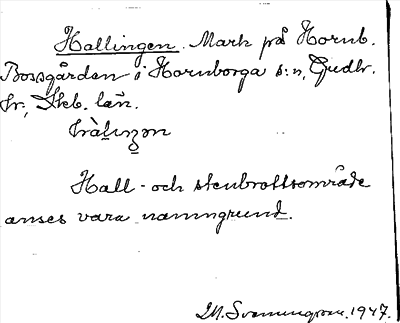 Hallingen. Mark på Hornb.
Bossgården i Hornborga s:n, Gudh.
hr., Skb. län.
hàlıŋən
Hall- och stenbrottsområde
anses vara namngrund.
M. 1947.